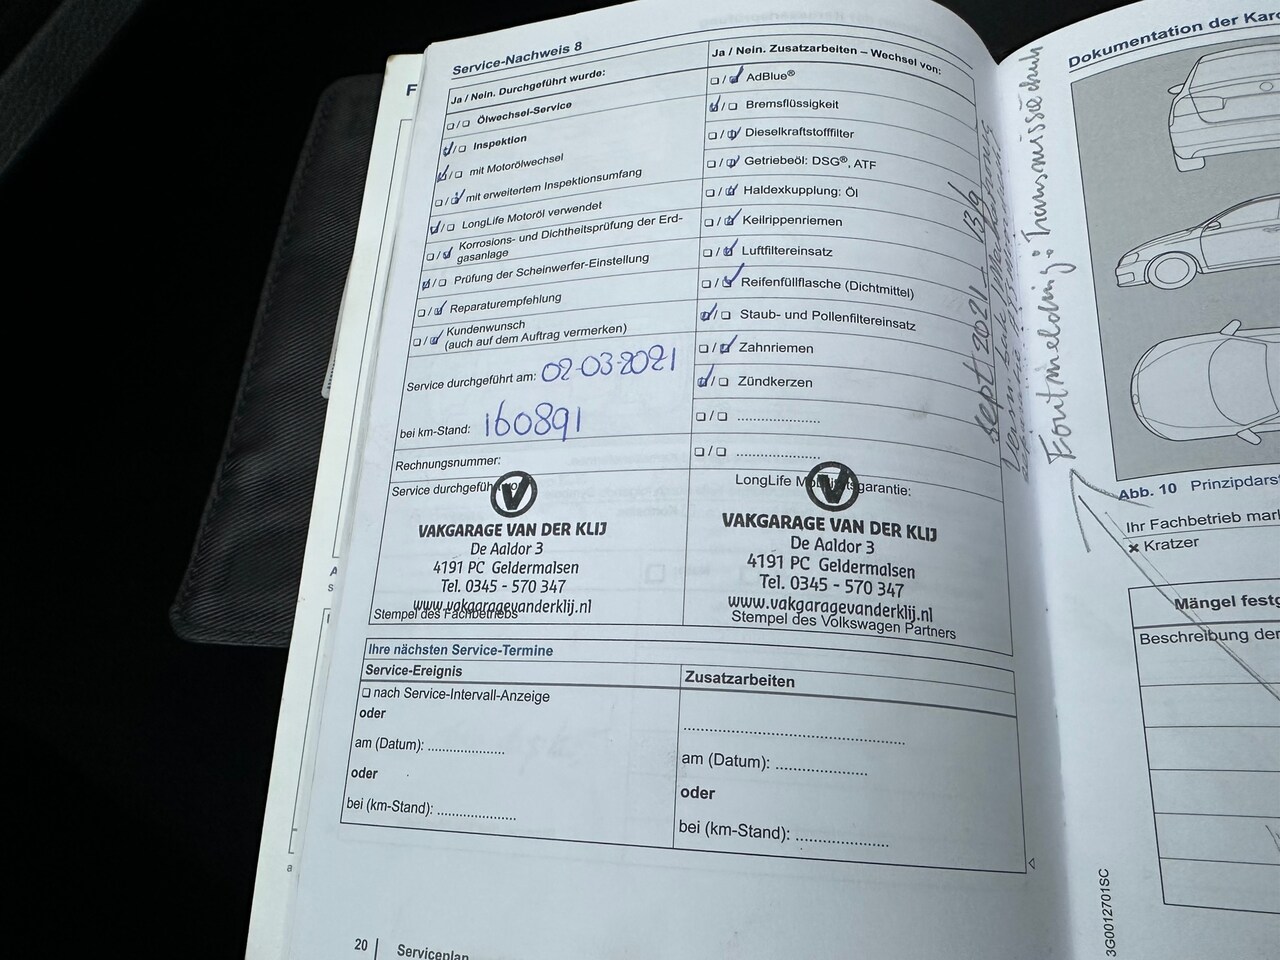 Service-Nachweis 8
Ja / Nein. Durchgeführt wurde:
Ölwechsel-Service
Inspektion
mit Motorölwechsel
mit erweitertem Inspektionsumfang
LongLife Motoröl verwendet
Korrosions- und Dichtheitsprüfung der Erd-
gasanlage
Prüfung der Scheinwerfer-Einstellung
Reparaturempfehlung
Kundenwunsch
(auch auf dem Auftrag vermerken)
Service durchgeführt am: 02-03-2021
bei km-Stand: 160891
Rechnungsnummer:
Service durchgeführt von:
VAKGARAGE VAN DER KLIJ
De Aaldor 3
4191 PC Geldermalsen
Tel. 0345 - 570 347
www.vakgaragevanderklij.nl
Stempel des Fachbetriebs
Ja / Nein. Zusatzarbeiten – Wechsel von:
AdBlue®
Bremsflüssigkeit
Dieselkraftstofffilter
Getriebeöl: DSG®, ATF
Haldexkupplung: Öl
Keilrippenriemen
Luftfiltereinsatz
Reifenfüllflasche (Dichtmittel)
Staub- und Pollenfiltereinsatz
Zahnriemen
Zündkerzen
LongLife Mobilitätsgarantie:
VAKGARAGE VAN DER KLIJ
De Aaldor 3
4191 PC Geldermalsen
Tel. 0345 - 570 347
www.vakgaragevanderklij.nl
Stempel des Volkswagen Partners
Ihre nächsten Service-Termine
Service-Ereignis
nach Service-Intervall-Anzeige
oder
am (Datum):
oder
bei (km-Stand):
Zusatzarbeiten
am (Datum):
oder
bei (km-Stand):
20 | Serviceplan
sept 2021 13/9
Foutmelding: Transmissie
Dokumentation der Karo
Abb. 10 Prinzipdarst
Ihr Fachbetrieb mark
Kratzer
Mängel festg
Beschreibung der
3G0012701SC